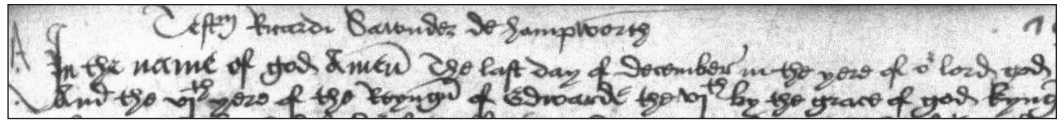 Testm Ricardi Sawnder de hampworth
In the name of god Amen The last day of december in the yere of or lord god
And the vjth yere of the Reyngn of Edwarde the vjth by the grace of god kyng